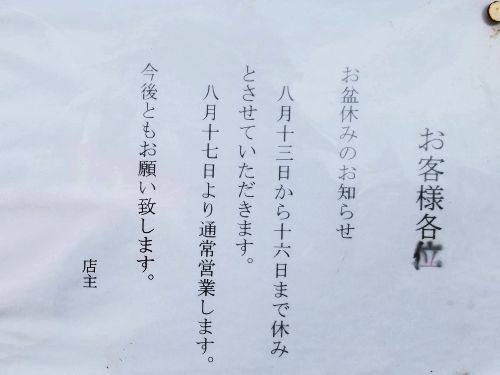 お客様各位
お盆休みのお知らせ
八月十三日から十六日まで休み
とさせていただきます。
八月十七日より通常営業します。
今後ともお願い致します。
店主